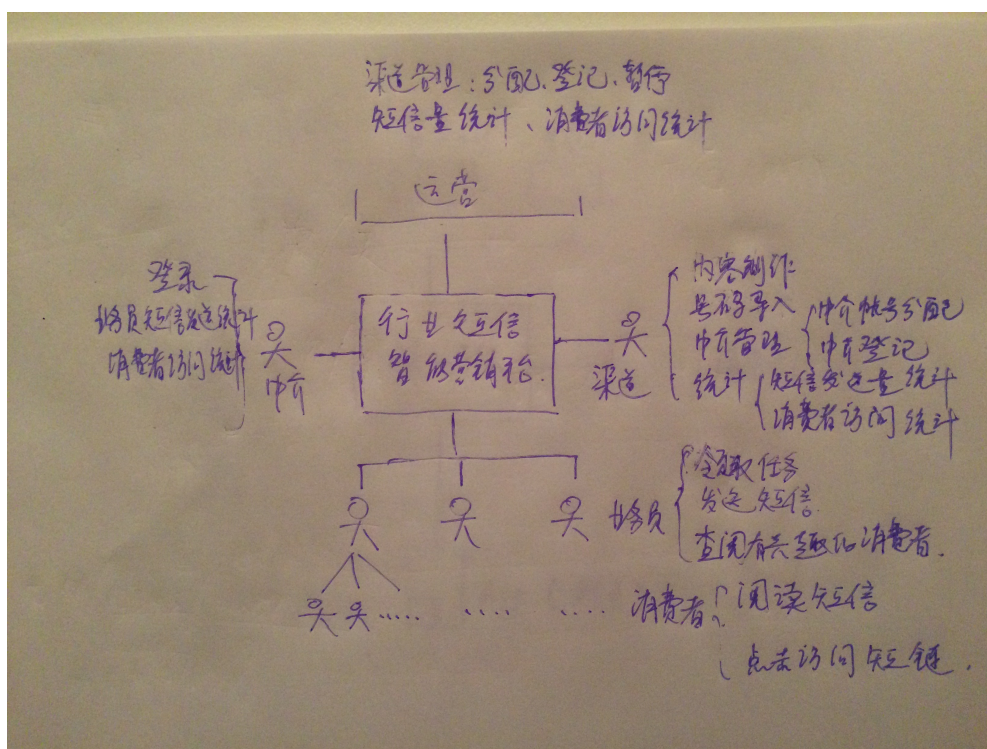 渠道管理：分配、登记、暂停
短信量统计、消费者访问统计
运营
登录
业务员短信发送统计
消费者访问统计
中介
行业短信
智能营销平台.
渠道
内容制作
号码导入
中介管理
中介帐号分配
中介登记
统计
短信发送量统计
消费者访问统计
业务员
领取任务
发送短信.
查阅有兴趣的消费者.
消费者
阅读短信
点击访问短链.